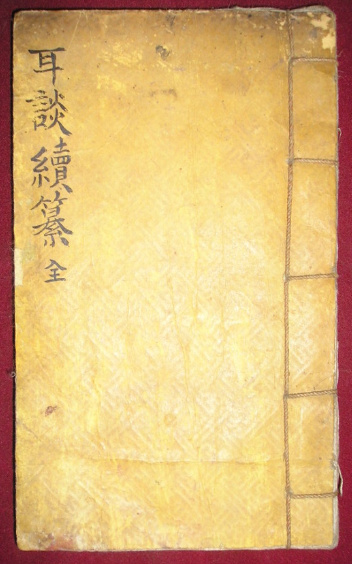 耳談續纂 全